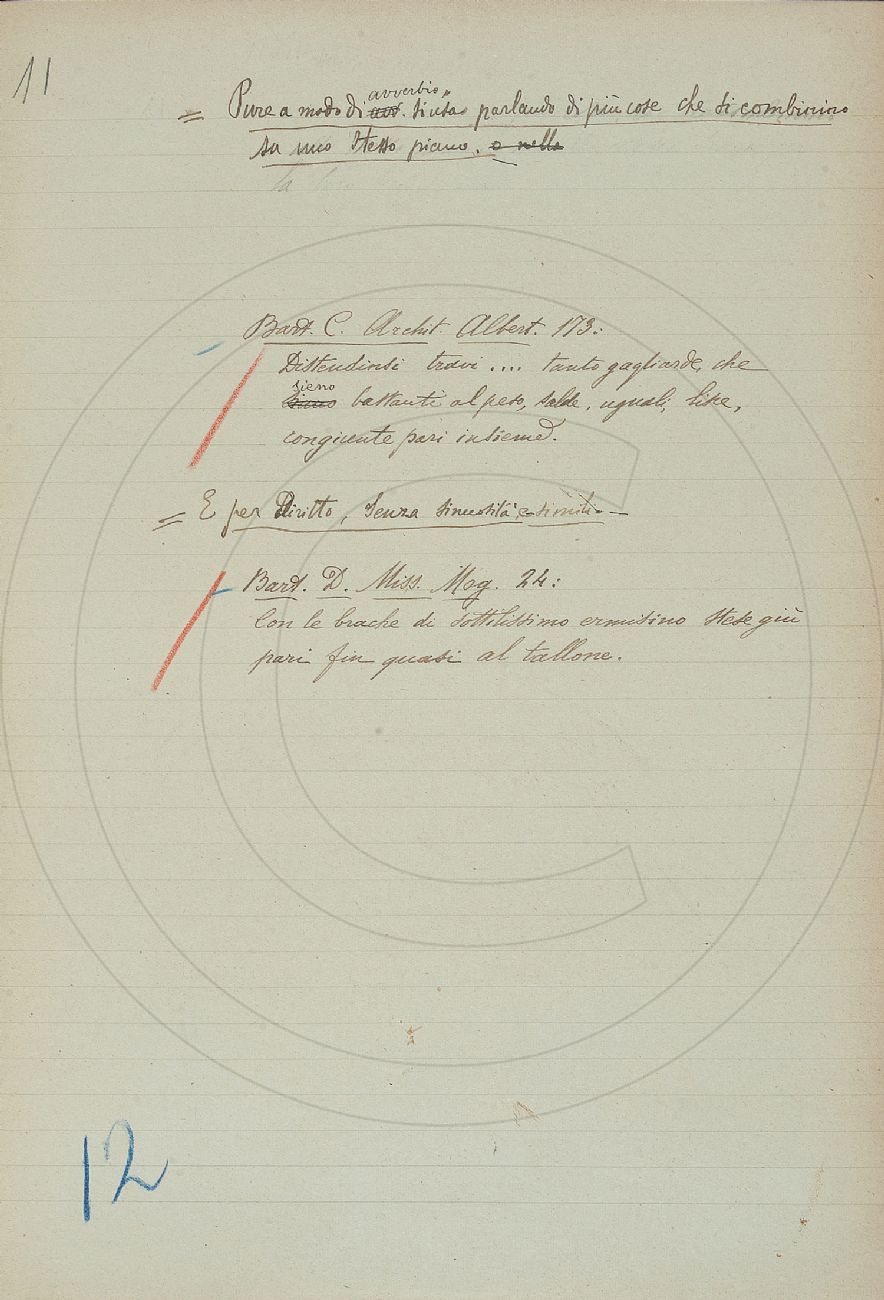 11
= Pure a modo di avv. avverbio, si usa parlando di più cose che si combinino
su uno stesso piano. o nello
Bart. C. Archit. Albert. 173:
Distendinsi travi .... tanto gagliarde, che
sieno bastanti al peso, salde, uguali, lise,
congiunte pari insieme.
= E per Diritto, senza sinuosità e simili. —
Bard. D. Miss. Mog. 24:
Con le brache di sottilissimo ermisino stese giù
pari fin quasi al tallone.
12